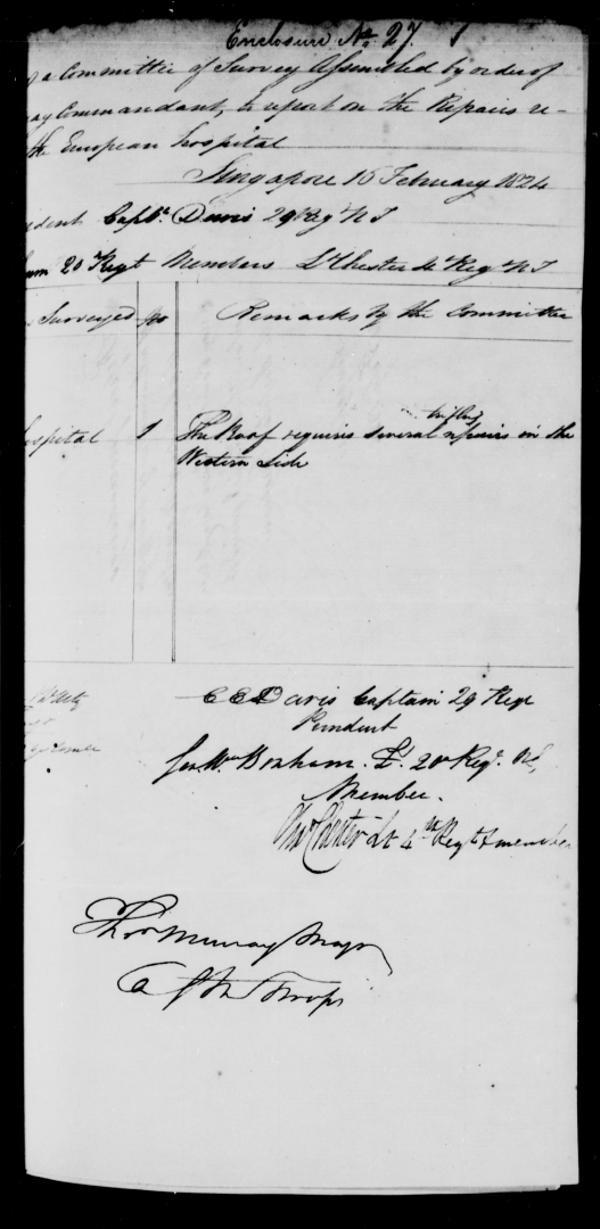 Enclosure No. 27.
a Committee of Survey Assembled by order of
Commandant, to report on the Repairs re-
the European hospital
Singapore 16 February 1824
Captn. Davis 29 Regt N I
20 Regt Members Lt Chester 4th Regt N I
Surveyed No Remarks by the Committee
ospital 1 The Roof requires several trifling repairs in the
Western Side
C E Davis Captain 29 Regt
President
Bonham. Lt. 20 Regt. NI,
Member.
Chester Lt 4th Regt & member
Thos Murray Major
Troops